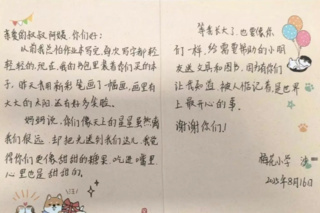 尊敬的叔叔阿姨,你们好:
以前我总怕作业本写完,每次写字都轻
轻的,现在,我的书包里装着你们买的本
子。昨天我用新彩笔画了一幅画,画里有
大大的太阳 还有好多笑脸。
妈妈说,你们像天上的星星虽然离
我们很远 却把光送到我们这儿,我觉
得你们更像甜甜的糖果 吃进嘴里
心里也是 甜甜的。
等我长大了,也要像你
们一样,给需要帮助的小朋
友送文具和图书,因为有你们
让我知道 被人惦记着,是世界
上最开心的事。
谢谢你们!
小学
2025年8月16日